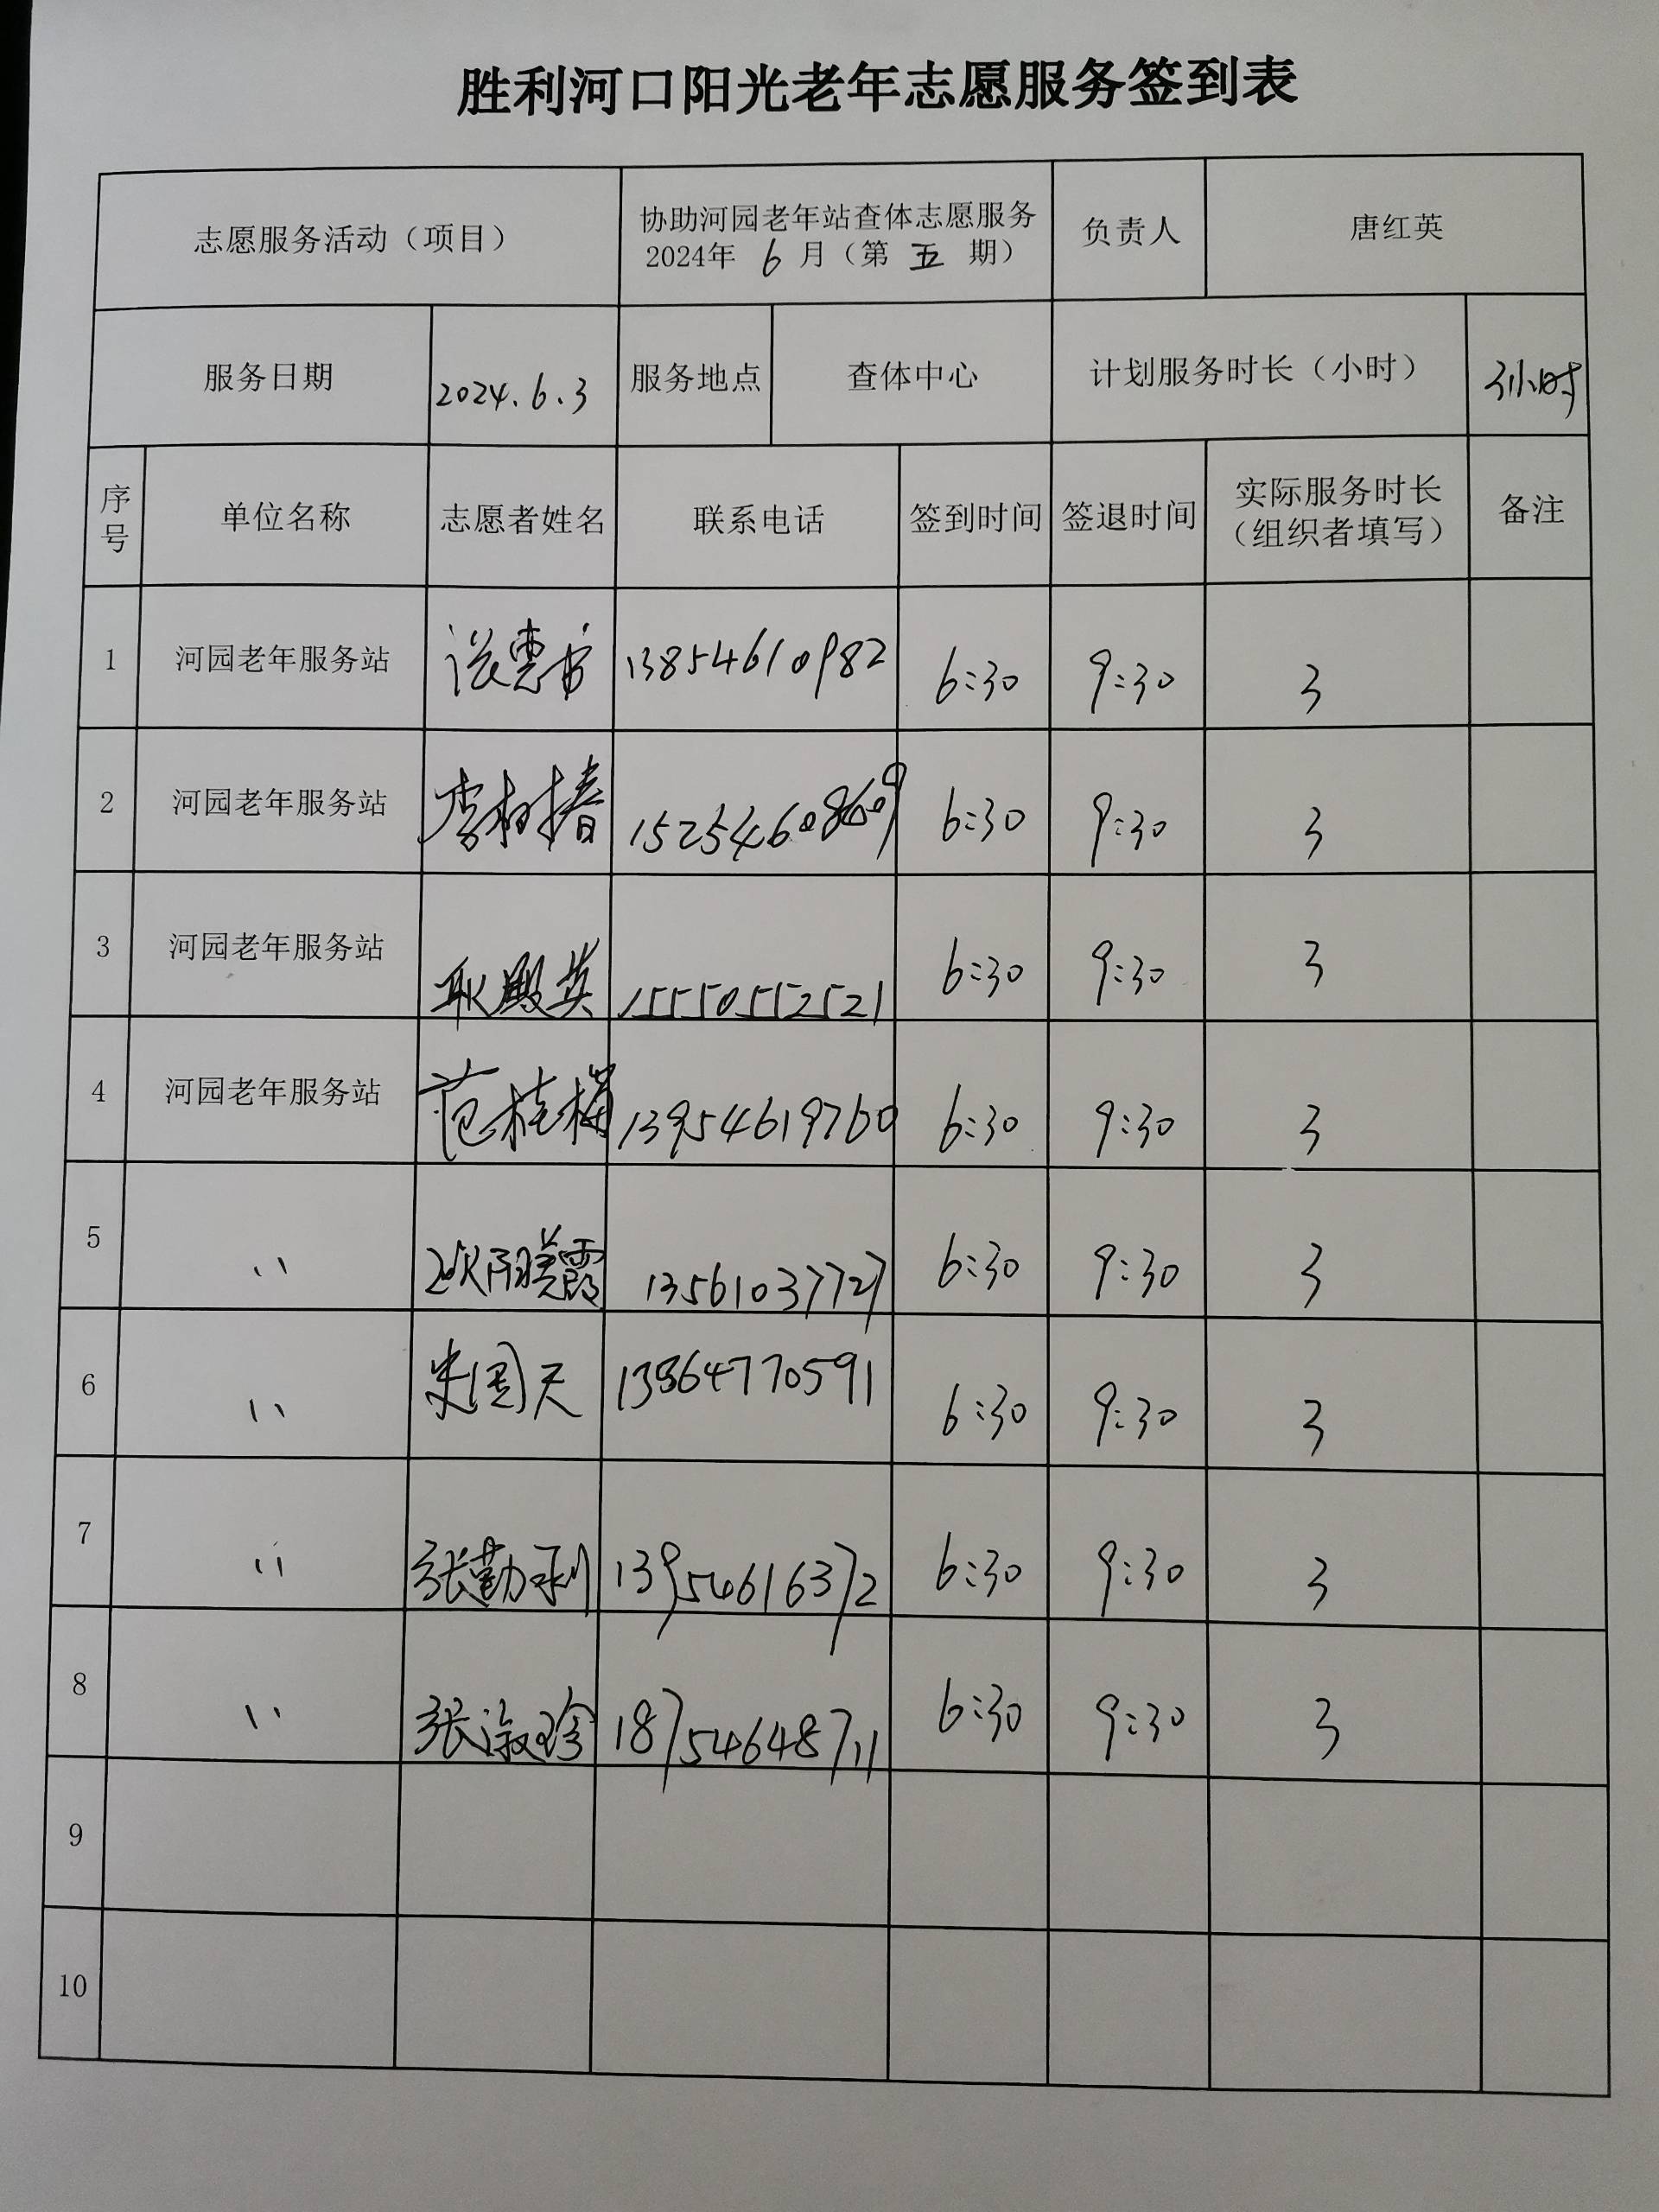 胜利河口阳光老年志愿服务签到表
志愿服务活动（项目） 协助河园老年站查体志愿服务 2024年 6 月（第 五 期） 负责人 唐红英
服务日期 2024.6.3 服务地点 查体中心 计划服务时长（小时） 3小时
序号 单位名称 志愿者姓名 联系电话 签到时间 签退时间 实际服务时长（组织者填写） 备注
1 河园老年服务站 13854610982 6:30 9:30 3
2 河园老年服务站 李树春 15254608609 6:30 9:30 3
3 河园老年服务站 耿殿英 15550552521 6:30 9:30 3
4 河园老年服务站 范桂梅 13954619760 6:30 9:30 3
5 〃 欧阳美霞 13561037727 6:30 9:30 3
6 〃 朱国天 13864770591 6:30 9:30 3
7 〃 张勤利 13954616372 6:30 9:30 3
8 〃 张淑珍 18754648711 6:30 9:30 3
9
10